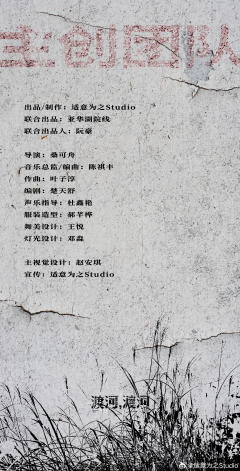 主创团队
出品/制作：适意为之Studio
联合出品：亚华湖院线
联合出品人：阮豪
导演：桑可舟
音乐总监/编曲：陈祺丰
作曲：叶子淳
编剧：楚天舒
声乐指导：杜鑫艳
服装造型：郝芊桦
舞美设计：王悦
灯光设计：邓磊
主视觉设计：赵安琪
宣传：适意为之Studio
渡河,渡河